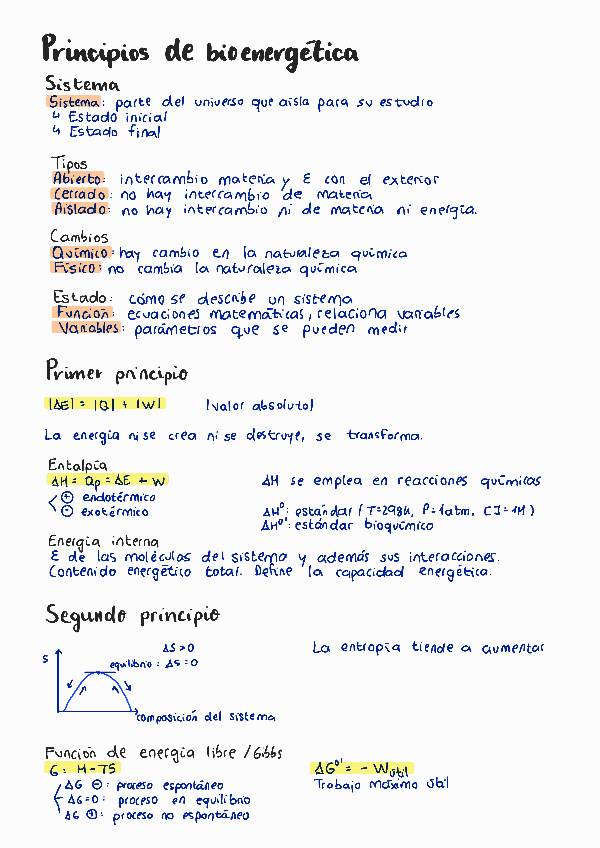 Principios de bioenergética
Sistema
Sistema: parte del universo que aisla para su estudio
↳ Estado inicial
↳ Estado final
Tipos
Abierto: intercambio materia y E con el exterior
Cerrado: no hay intercambio de materia
Aislado: no hay intercambio ni de materia ni energía.
Cambios
Químico: hay cambio en la naturaleza química
Físico: no cambia la naturaleza química
Estado: cómo se describe un sistema
Función: ecuaciones matemáticas, relaciona variables
Variables: parámetros que se pueden medir
Primer principio
|ΔE| = |Q| + |W| |valor absoluto|
La energía ni se crea ni se destruye, se transforma.
Entalpía
ΔH = Qp = ΔE + W ΔH se emplea en reacciones químicas
⊕ endotérmico
⊖ exotérmico ΔH°: estándar (T=298K, P=1atm, [C]=1M)
ΔH°': estándar bioquímico
Energía interna
E de las moléculas del sistema y además sus interacciones.
Contenido energético total. Define la capacidad energética.
Segundo principio
ΔS>0 La entropía tiende a aumentar
S equilibrio: ΔS=0
composición del sistema
Función de energía libre / Gibbs
G = H-TS ΔG°' = - Wútil
ΔG ⊖: proceso espontáneo Trabajo máximo útil
ΔG=0: proceso en equilibrio
ΔG ⊕: proceso no espontáneo